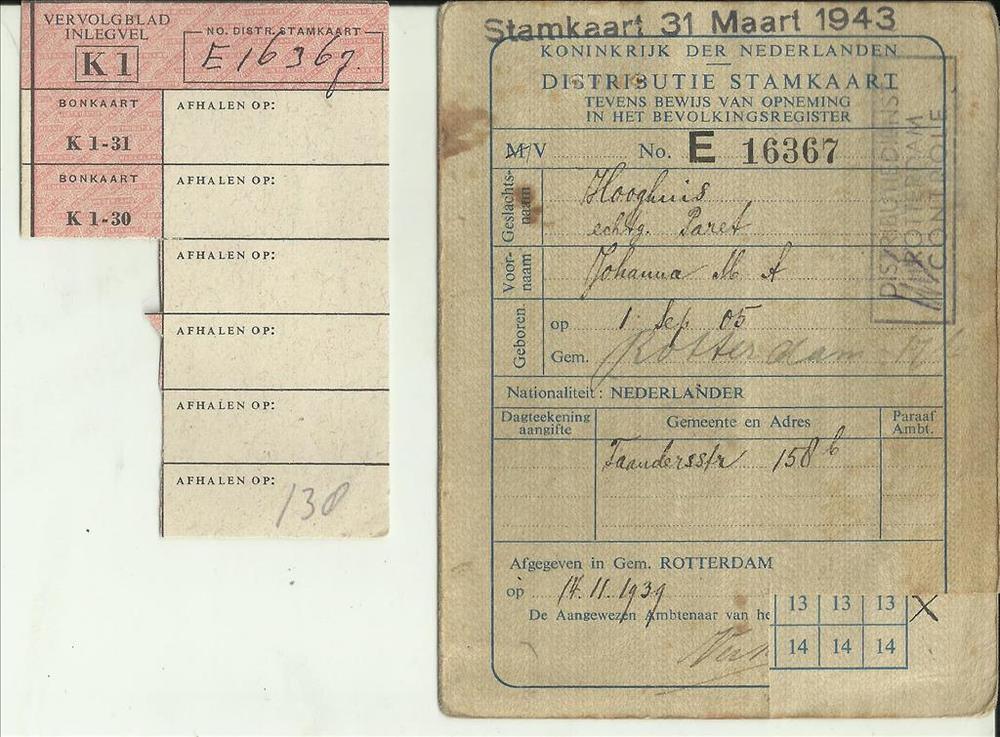 VERVOLGBLAD
INLEGVEL
K 1
NO. DISTR. STAMKAART
E 16367.
BONKAART
K 1-31
AFHALEN OP:
BONKAART
K 1-30
AFHALEN OP:
AFHALEN OP:
AFHALEN OP:
AFHALEN OP:
AFHALEN OP:
138
Stamkaart 31 Maart 1943
KONINKRIJK DER NEDERLANDEN
DISTRIBUTIE STAMKAART
TEVENS BEWIJS VAN OPNEMING
IN HET BEVOLKINGSREGISTER
DISTRIBUTIEDIENST
ROTTERDAM
CONTROLE
M/V No. E 16367
Geslachts-
naam
Hooghuis
echtg. Paret
Voor-
naam
Johanna M A
Geboren
op 1 Sep 05
Gem. Rotterdam
Nationaliteit: NEDERLANDER
Dagteekening
aangifte
Gemeente en Adres
Paraaf
Ambt.
Taandersstr 158 b
Afgegeven in Gem. ROTTERDAM
op 14.11.1939
De Aangewezen Ambtenaar van he
13 13 13 X
14 14 14